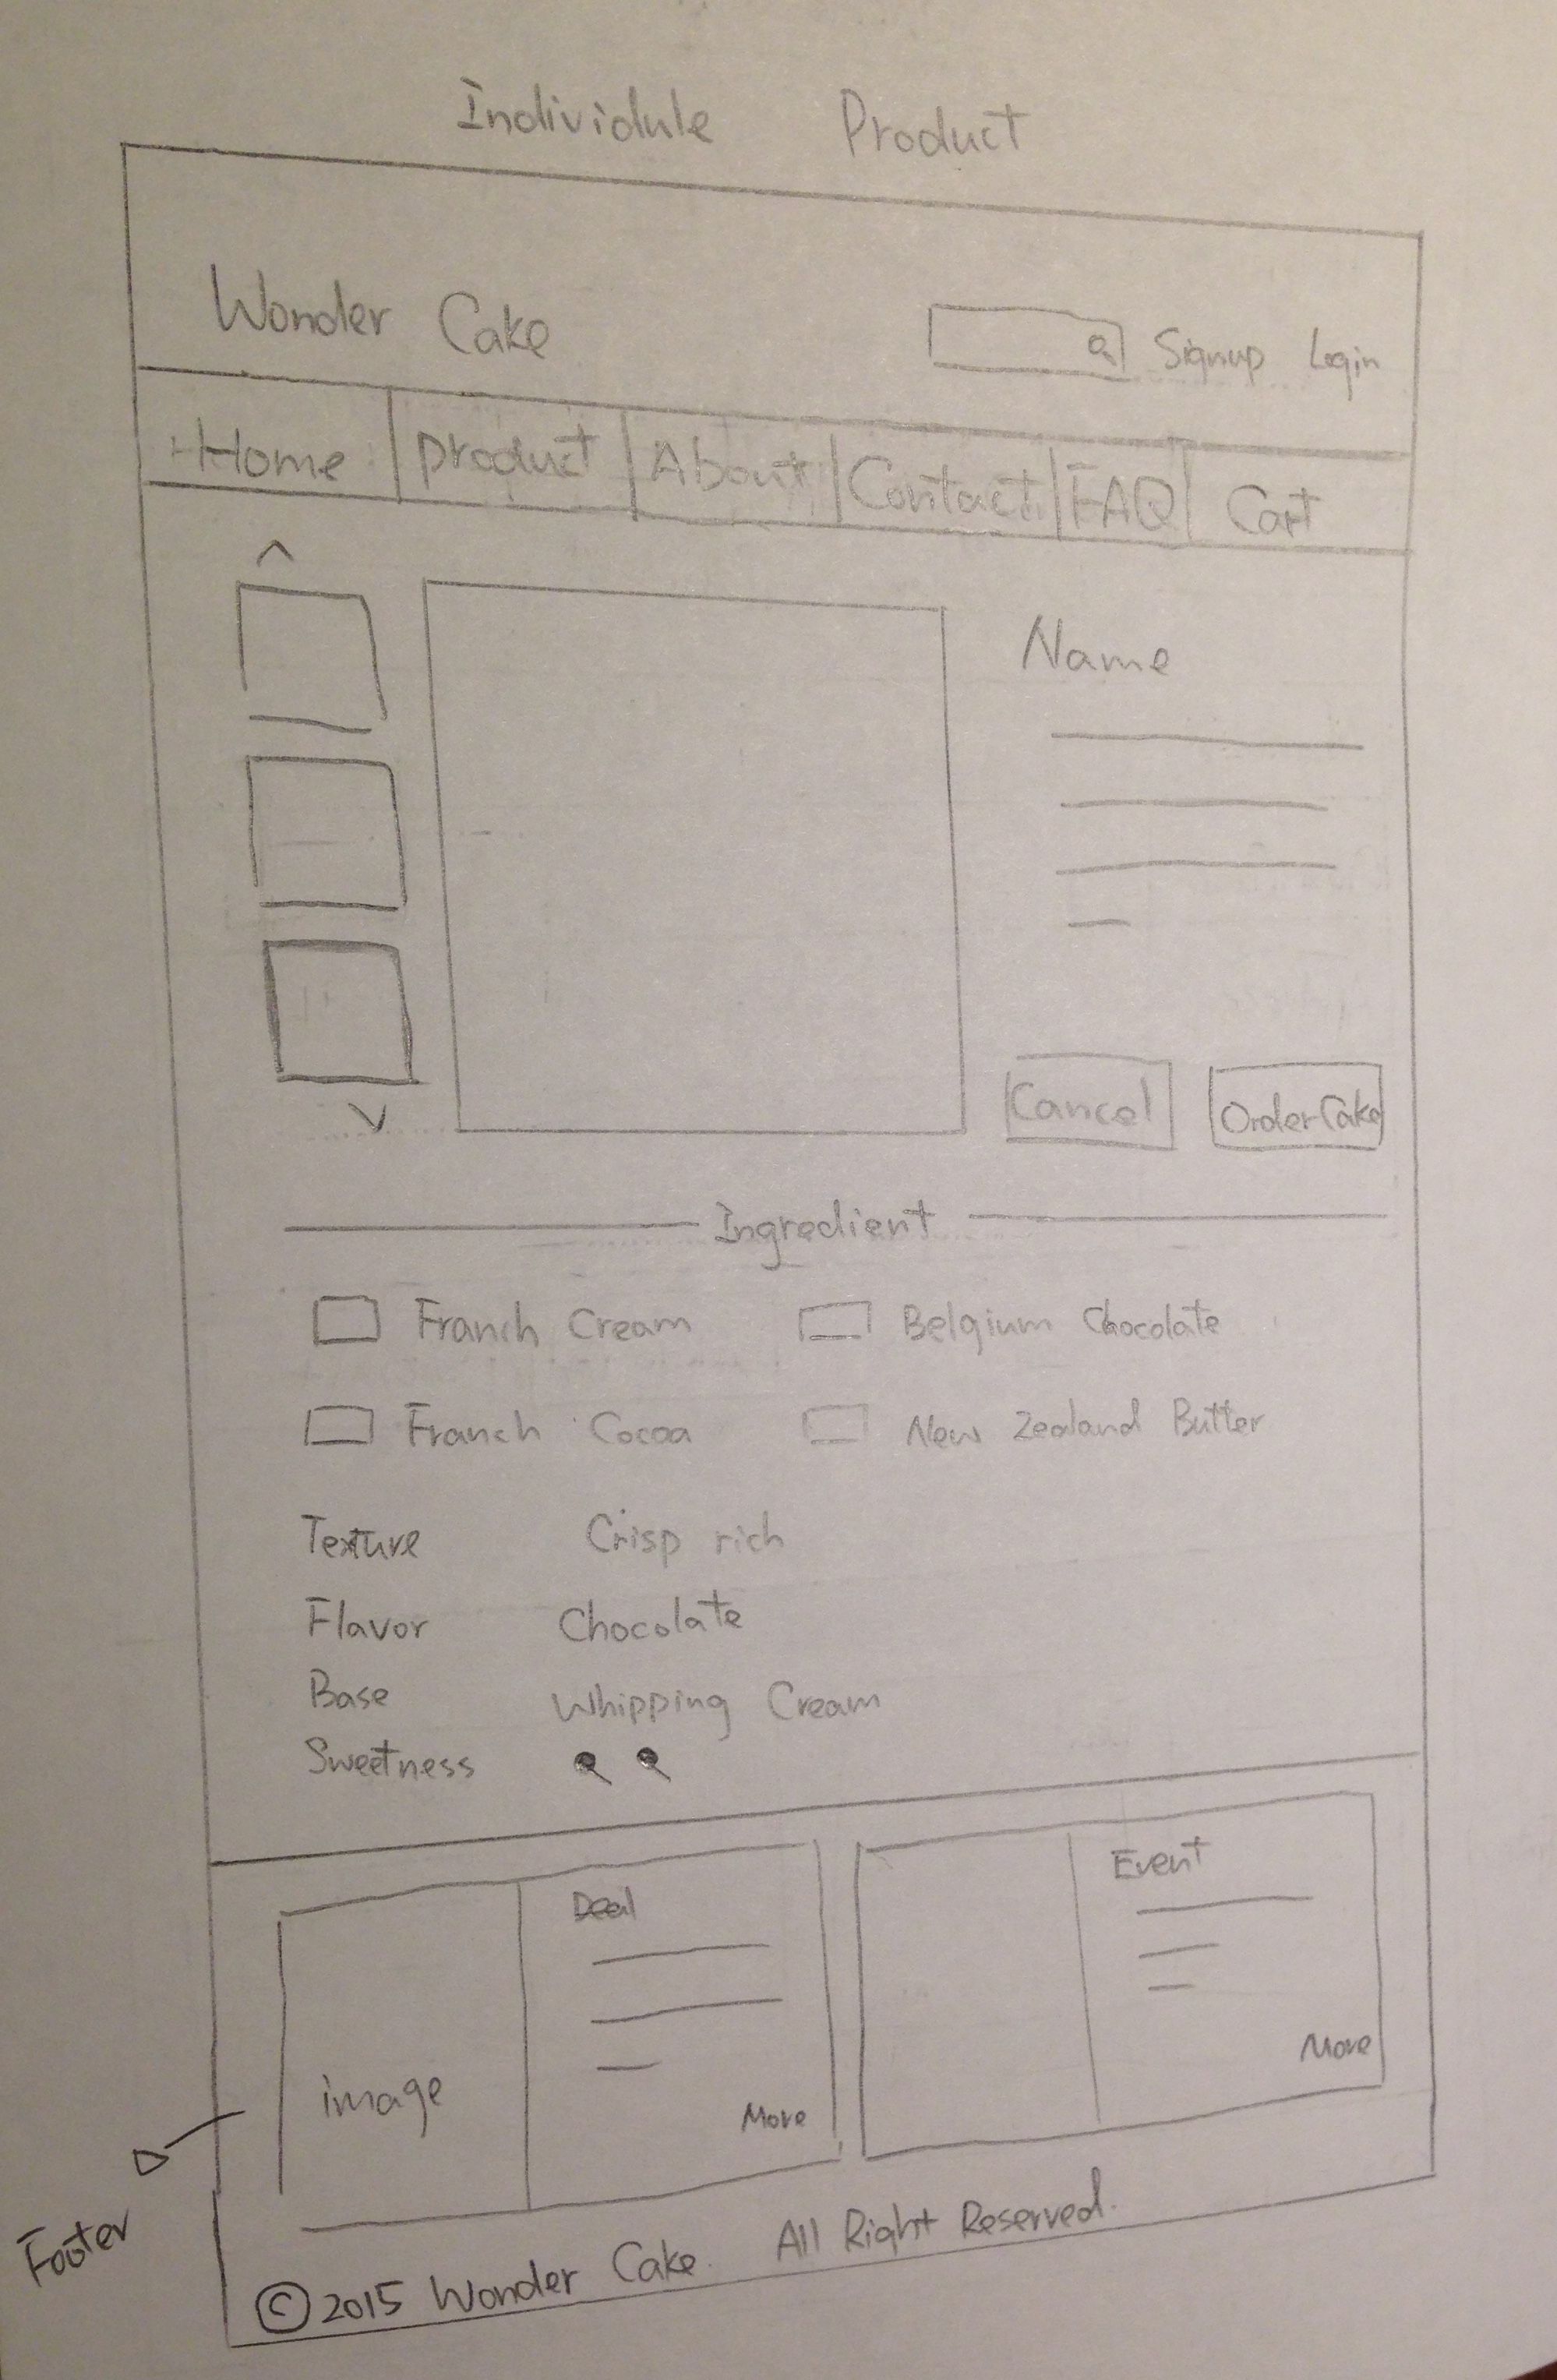 Individule Product
Wonder Cake
Signup Login
Home product About Contact FAQ Cart
Name
Cancel Order Cake
Ingredient
Franch Cream Belgium Chocolate
Franch Cocoa New Zealand Butter
Texture Crisp rich
Flavor Chocolate
Base Whipping Cream
Sweetness
Deal
Event
image
More
More
Footer
©2015 Wonder Cake. All Right Reserved.